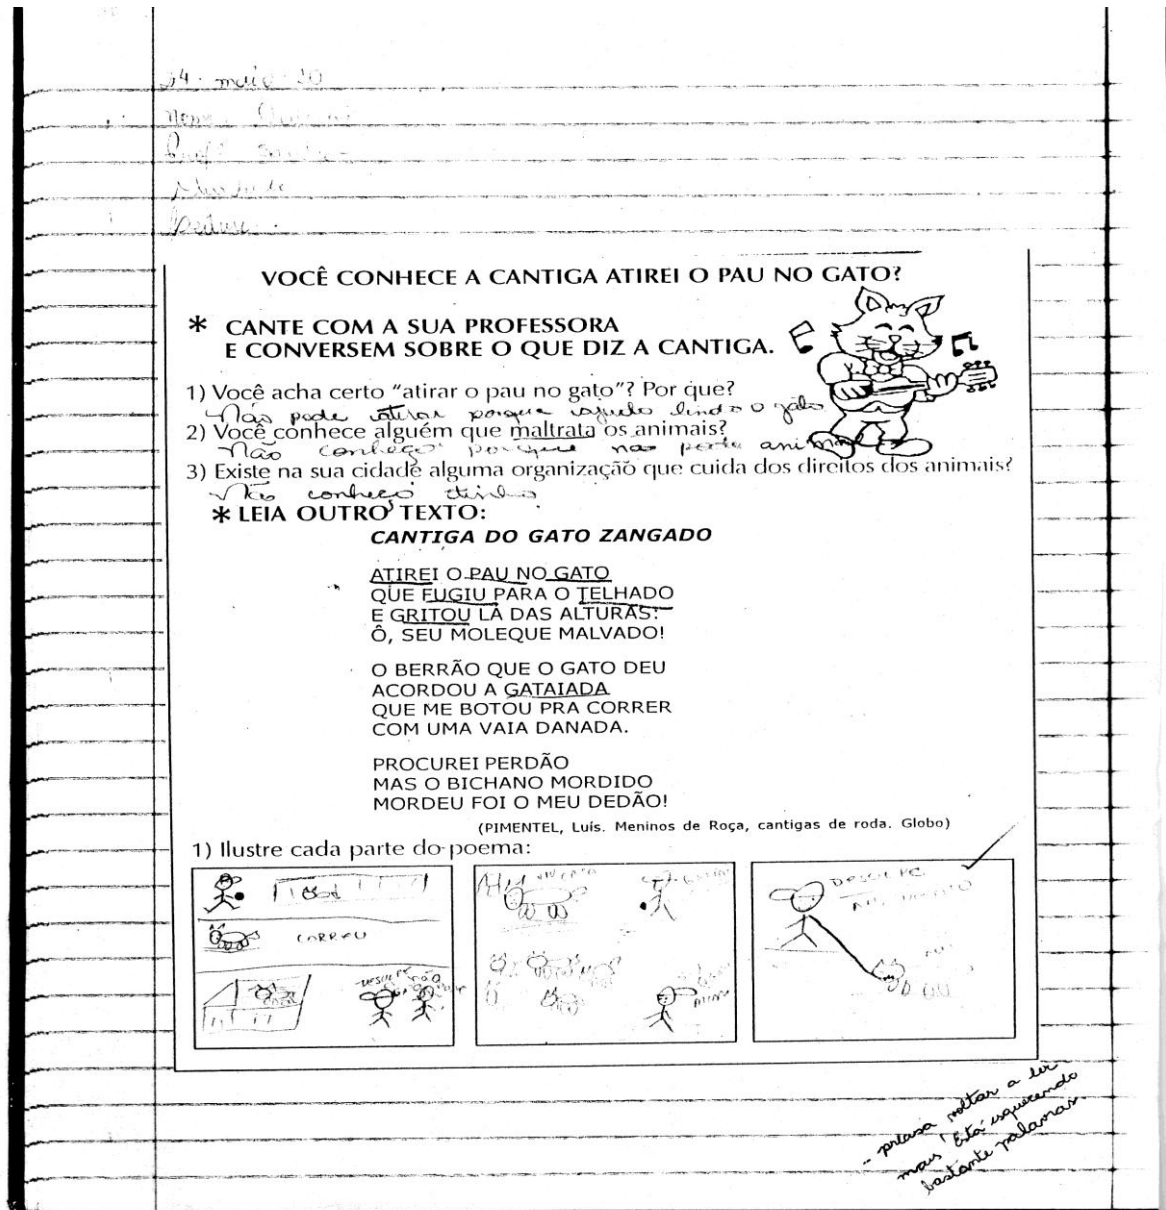 24 maio 10
VOCÊ CONHECE A CANTIGA ATIREI O PAU NO GATO?
* CANTE COM A SUA PROFESSORA
E CONVERSEM SOBRE O QUE DIZ A CANTIGA.
1) Você acha certo “atirar o pau no gato”? Por que?
Não pode atirar porque lindo o gato
2) Você conhece alguém que maltrata os animais?
Não conheço porque nao
3) Existe na sua cidade alguma organização que cuida dos direitos dos animais?
Não conheço
* LEIA OUTRO TEXTO:
CANTIGA DO GATO ZANGADO
ATIREI O PAU NO GATO
QUE FUGIU PARA O TELHADO
E GRITOU LÁ DAS ALTURAS:
Ô, SEU MOLEQUE MALVADO!
O BERRÃO QUE O GATO DEU
ACORDOU A GATAIADA
QUE ME BOTOU PRA CORRER
COM UMA VAIA DANADA.
PROCUREI PERDÃO
MAS O BICHANO MORDIDO
MORDEU FOI O MEU DEDÃO!
(PIMENTEL, Luís. Meninos de Roça, cantigas de roda. Globo)
1) Ilustre cada parte do poema:
- precisa voltar a ler
mais! Está esquecendo
bastante palavras.